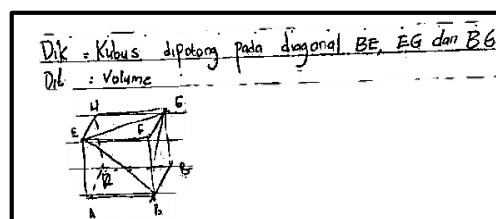 Dik : Kubus dipotong pada diagonal BE, EG dan BG
Dit : Volume
H G
E F
A B